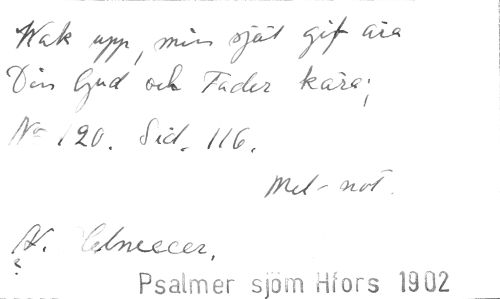 Wak upp, min själ gif ära
Din Gud och Fader kära;
No 120. Sid. 116.
Mel-not.
N.
?
Psalmer sjöm Hfors 1902